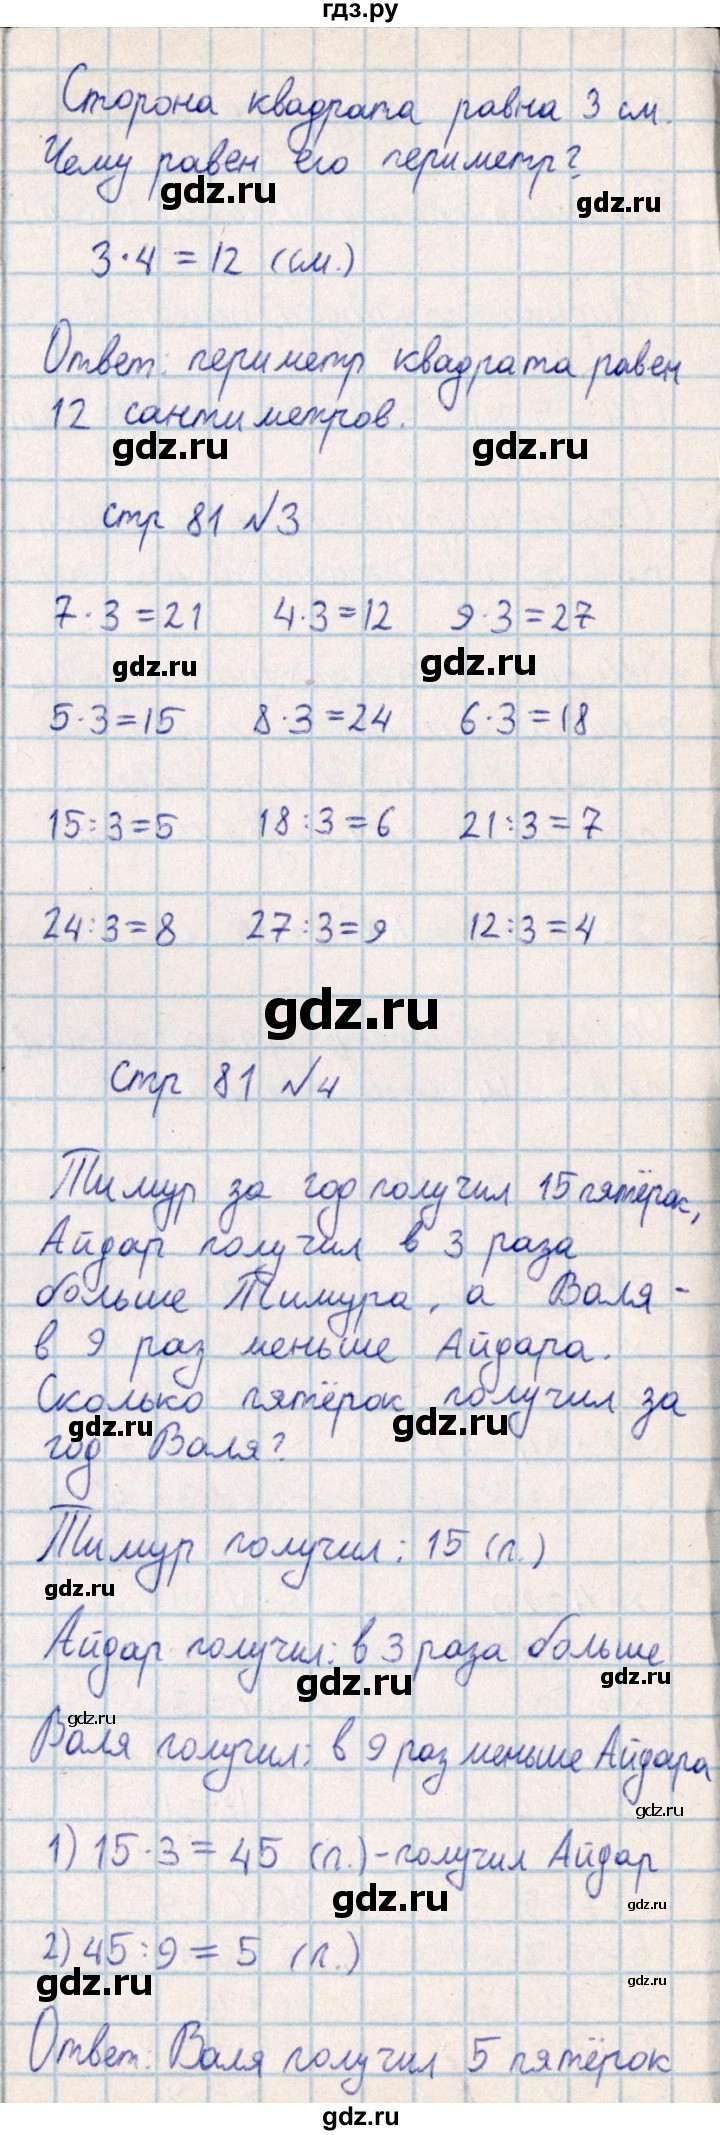 гдз.ру
Сторона квадрата равна 3 см.
Чему равен его периметр?
gdz.ru
gdz.ru
3·4=12 (см.)
Ответ: периметр квадрата равен
12 сантиметров.
gdz.ru gdz.ru
стр 81 №3
7·3=21 4·3=12 9·3=27
gdz.ru gdz.ru
5·3=15 8·3=24 6·3=18
15:3=5 18:3=6 21:3=7
24:3=8 27:3=9 12:3=4
gdz.ru
стр 81 №4
Тимур за год получил 15 пятёрок,
Айдар получил в 3 раза
больше Тимура, а Валя -
в 9 раз меньше Айдара.
Сколько пятёрок получил за
gdz.ru gdz.ru
год Валя?
Тимур получил: 15 (п.)
gdz.ru
Айдар получил: в 3 раза больше
gdz.ru gdz.ru
gdz.ru
Валя получил: в 9 раз меньше Айдара
gdz.ru
1) 15·3=45 (п.)-получил Айдар
gdz.ru gdz.ru
2) 45:9=5 (п.)
gdz.ru gdz.ru
Ответ: Валя получил 5 пятёрок
gdz.ru gdz.ru